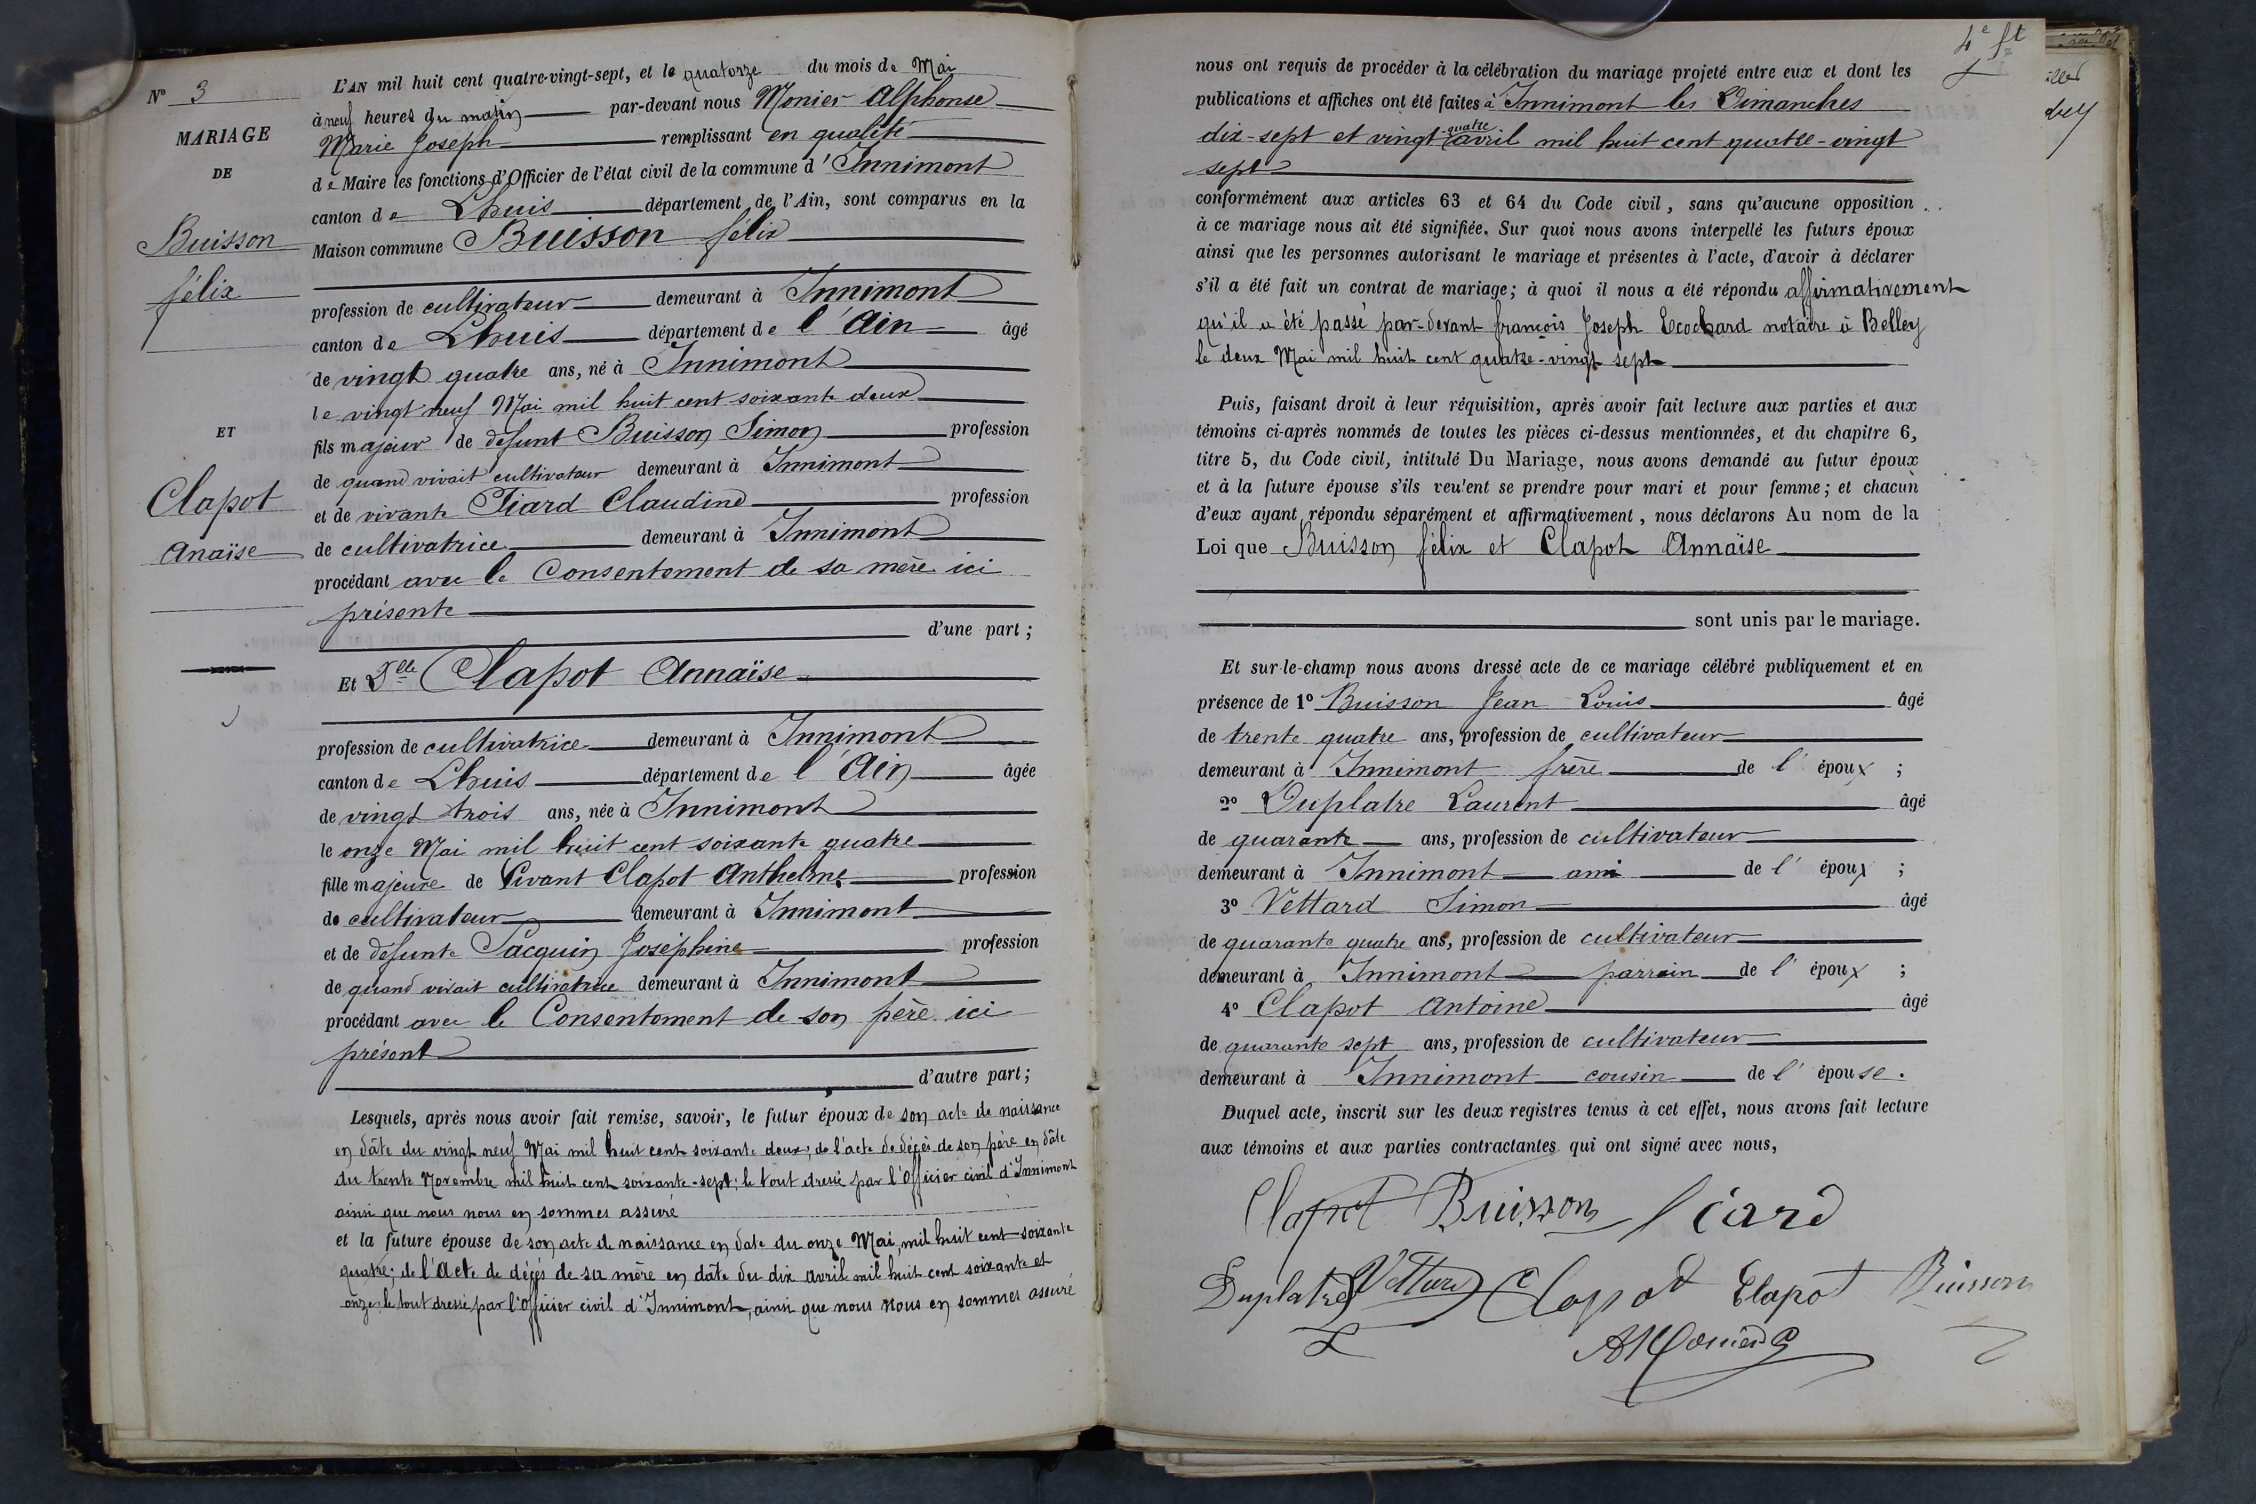 N° 3
MARIAGE
DE
Buisson
félix
ET
Clapot
Anaïse
L'AN mil huit cent quatre-vingt-sept, et le quatorze du mois de Mai
à neuf heures du matin par-devant nous Monier Alphonse
Marie Joseph remplissant en qualité
de Maire les fonctions d'Officier de l'état civil de la commune d'Innimont
canton de Lhuis département de l'Ain, sont comparus en la
Maison commune Buisson félix
profession de cultivateur demeurant à Innimont
canton de Lhuis département de l'Ain âgé
de vingt quatre ans, né à Innimont
le vingt neuf Mai mil huit cent soixante deux
fils majeur de defunt Buisson Simon profession
de quand vivait cultivateur demeurant à Innimont
et de vivante Piard Claudine profession
de cultivatrice demeurant à Innimont
procédant avec le Consentement de sa mère ici
présente
d'une part;
Et Dlle Clapot Annaïse
profession de cultivatrice demeurant à Innimont
canton de Lhuis département de l'Ain âgée
de vingt trois ans, née à Innimont
le onze Mai mil huit cent soixante quatre
fille majeure de Vivant Clapot Anthelme profession
de cultivateur demeurant à Innimont
et de defunte Pacquin Joséphine profession
de quand vivait cultivatrice demeurant à Innimont
procédant avec le Consentement de son père ici
présent
d'autre part;
Lesquels, après nous avoir fait remise, savoir, le futur époux de son acte de naissance
en dâte du vingt neuf Mai mil huit cent soixante deux; de l'acte de décès de son père en dâte
du trente Novembre mil huit cent soixante-sept; le tout dressé par l'Officier civil d'Innimont
ainsi que nous nous en sommes assuré
et la future épouse de son acte de naissance en date du onze Mai, mil huit cent soixante
quatre; de l'Acte de décès de sa mère en dâte du dix avril mil huit cent soixante et
onze; le tout dressé par l'Officier civil d'Innimont, ainsi que nous nous en sommes assuré
4e ft
nous ont requis de procéder à la célébration du mariage projeté entre eux et dont les
publications et affiches ont été faites à Innimont les Dimanches
dix-sept et vingt-quatre avril mil huit cent quatre-vingt
sept
conformément aux articles 63 et 64 du Code civil, sans qu'aucune opposition
à ce mariage nous ait été signifiée. Sur quoi nous avons interpellé les futurs époux
ainsi que les personnes autorisant le mariage et présentes à l'acte, d'avoir à déclarer
s'il a été fait un contrat de mariage; à quoi il nous a été répondu affirmativement
qu'il a été passé par-devant françois Joseph Ecochard notaire à Belley
le deux Mai mil huit cent quatre-vingt sept
Puis, faisant droit à leur réquisition, après avoir fait lecture aux parties et aux
témoins ci-après nommés de toutes les pièces ci-dessus mentionnées, et du chapitre 6,
titre 5, du Code civil, intitulé Du Mariage, nous avons demandé au futur époux
et à la future épouse s'ils veu'ent se prendre pour mari et pour femme; et chacun
d'eux ayant répondu séparément et affirmativement, nous déclarons Au nom de la
Loi que Buisson félix et Clapot Annaïse
sont unis par le mariage.
Et sur-le-champ nous avons dressé acte de ce mariage célébré publiquement et en
présence de 1° Buisson Jean Louis âgé
de trente quatre ans, profession de cultivateur
demeurant à Innimont frère de l'époux;
2° Duplatre Laurent âgé
de quarante ans, profession de cultivateur
demeurant à Innimont ami de l'époux;
3° Vettard Simon âgé
de quarante quatre ans, profession de cultivateur
demeurant à Innimont parrain de l'époux;
4° Clapot Antoine âgé
de quarante sept ans, profession de cultivateur
demeurant à Innimont cousin de l'épouse.
Duquel acte, inscrit sur les deux registres tenus à cet effet, nous avons fait lecture
aux témoins et aux parties contractantes qui ont signé avec nous,
Clapot Buisson Piard
Duplatre Vettard Clapot Clapot Buisson
AMonier